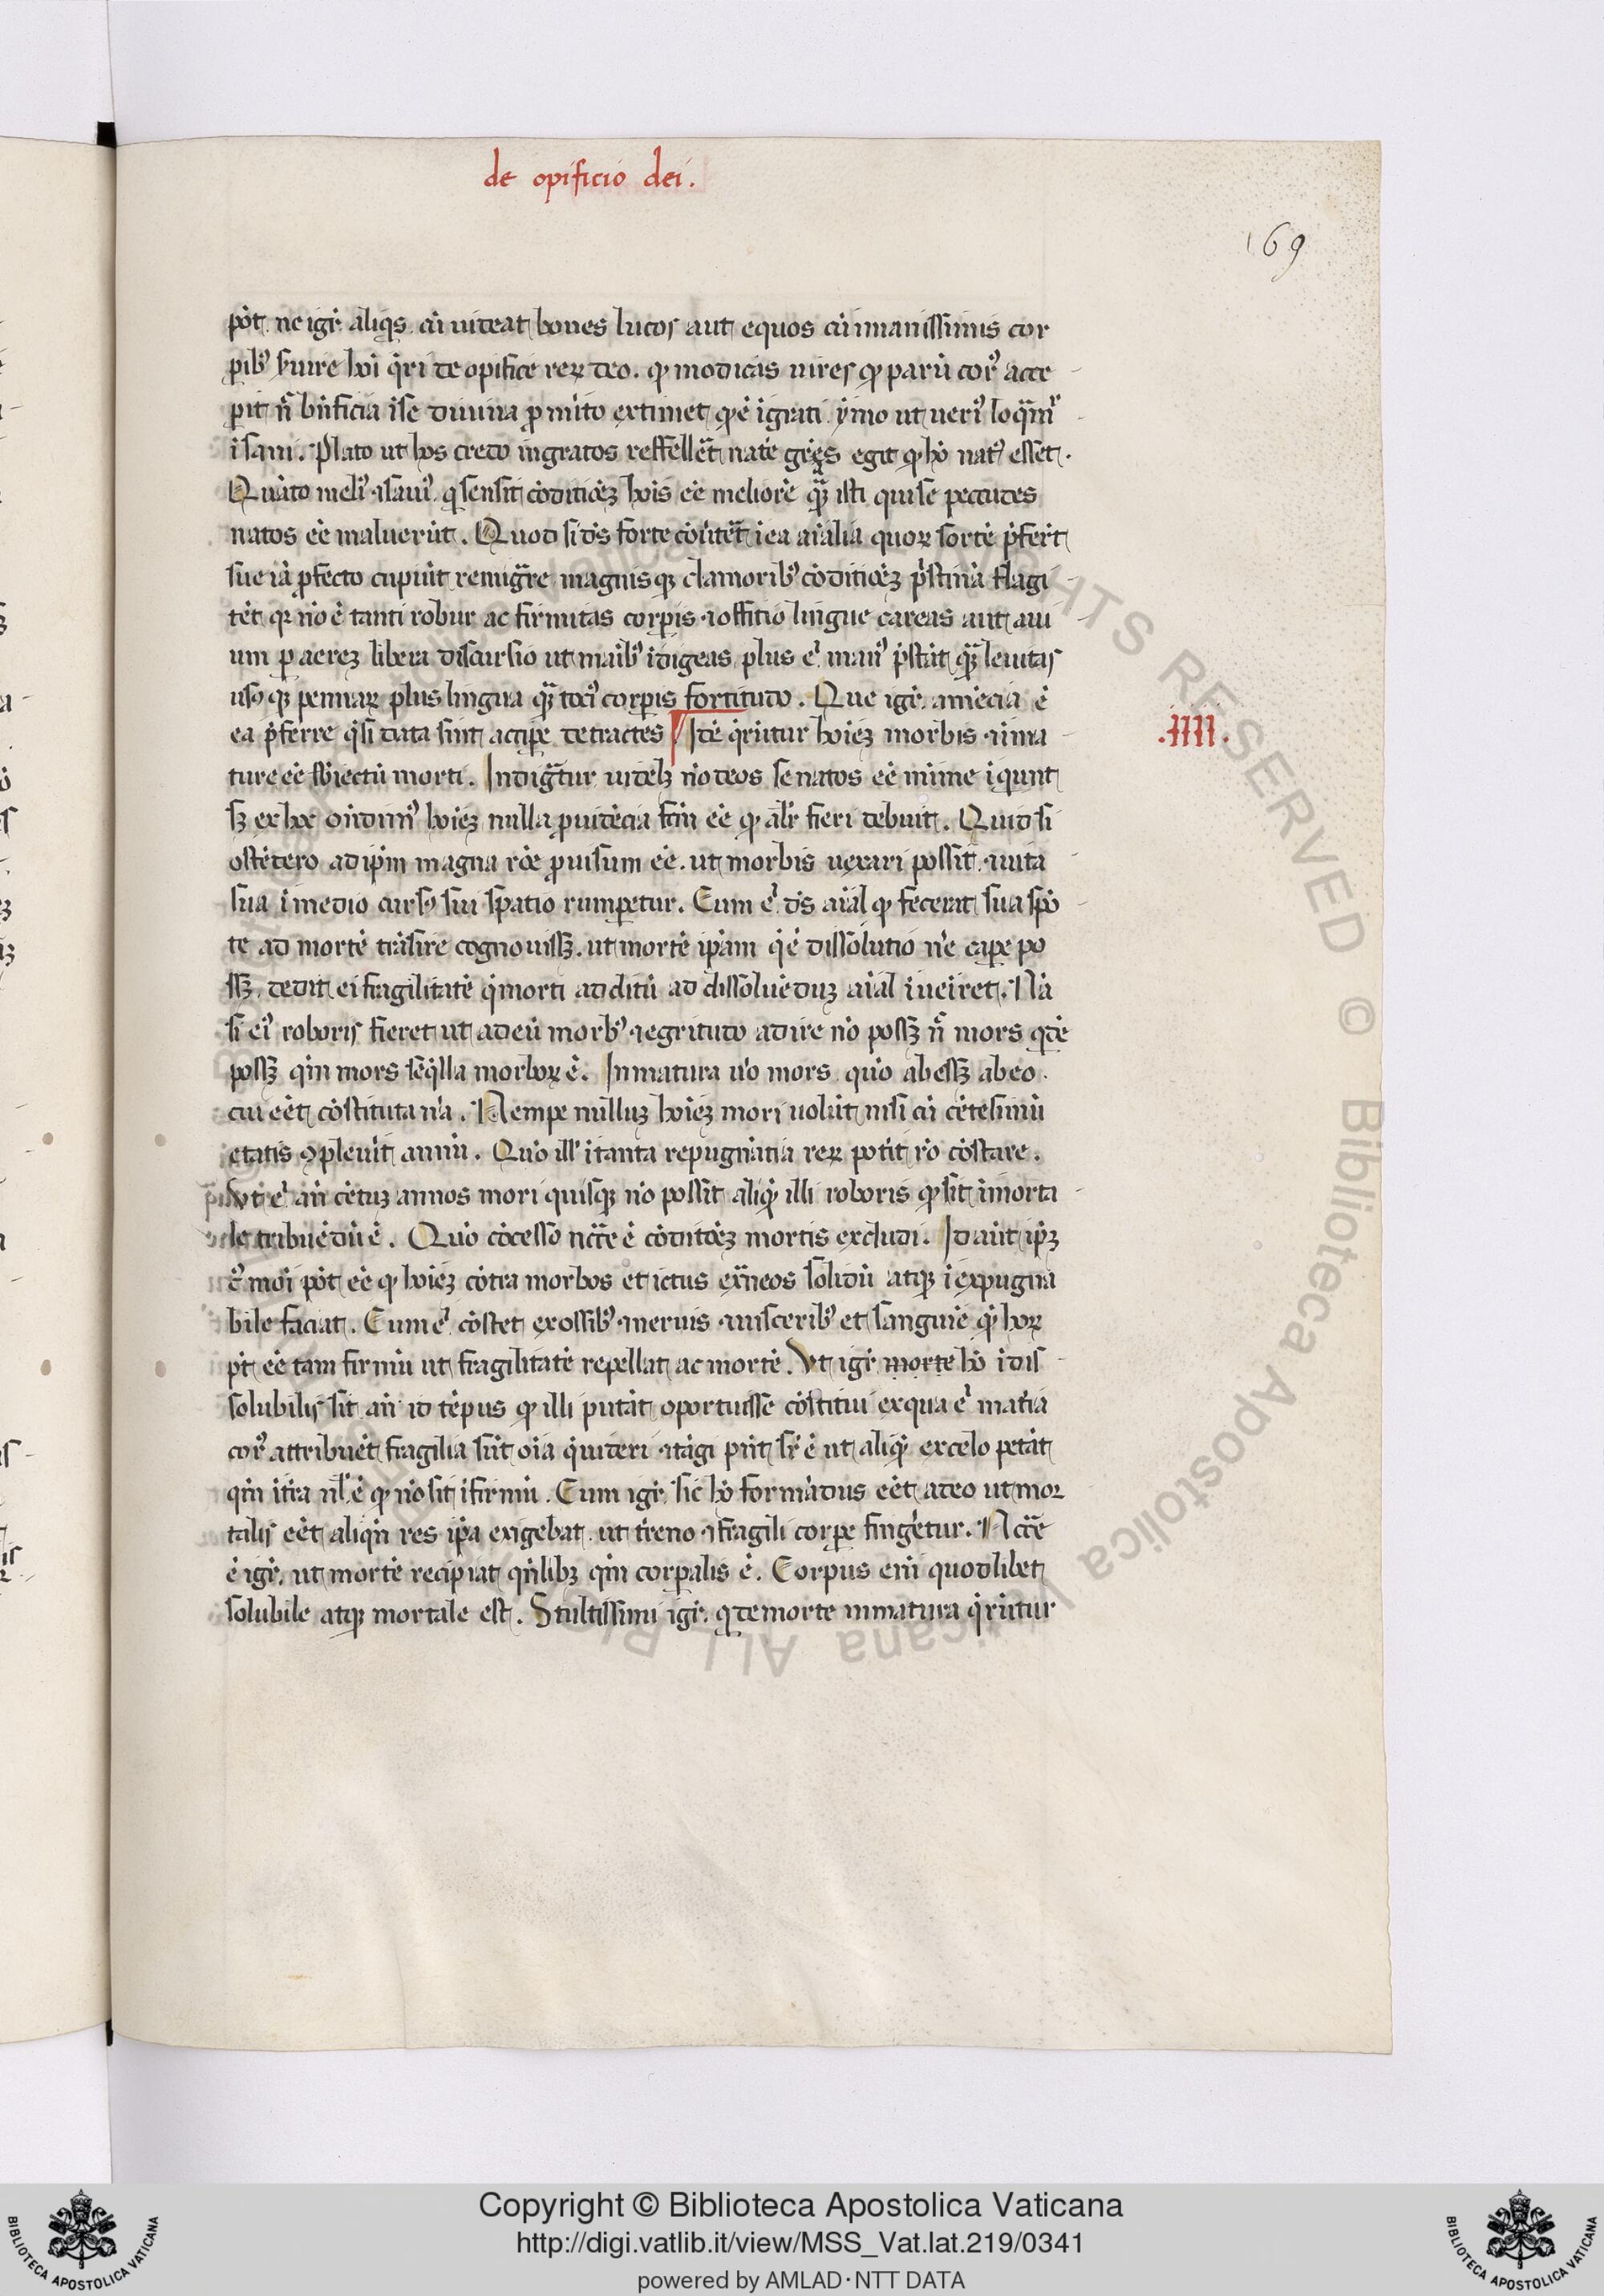 de opificio dei.
169
pōt. ne igr̃ aliqs. cū uideat boues lucos aut equos cū inmanissimis cor
pib; ſuire hoi q̃ri de opifice reꝝ deo. ꝙ modicas uires ꝙ parū cor̃ acce
pit ñ bñficia ī se diuina ꝓ mīto extimet ꝙ ē īgrati ymo ut ueri᾽ loq̃m᾽
īsani. Plato ut hos credo ingratos reffellet̃ nate gr̃es egit ꝙ hō nat᾽ esset.
Quāto meli᾽ ⁊ sani᾽. q sensit cōditiōeȝ hoīs eē meliorē qȝ̃ isti qui se pecudes
natos eē maluerūt. Quod si ds̄ forte cōūtet̃ ī ea aīalia quoꝝ sortē p̃fer̃t
sue iā ꝓfecto cupiūt remigr̃re magnisqȝ clamorib; cōditiōeȝ p̃stinā flagi
tēt qꝛ nō ē tanti robur ac firmitas corꝑis ⁊ offitio lingue careas aut aui
um ꝑ aereȝ libera discursio ut maīb; īdigeas plus ē᾽ man᾽ p̃stāt qȝ̃ leuitas
usoqȝ pennaꝝ plus lingua qȝ̃ toti᾽ corꝑis fortitudo. Que igr̃ amēcia ē
ea p̃ferre q̃ si data sint accipe detractes ¶ Itē q̃rūtur hoīeȝ morbis ⁊ īma
.IIII.
ture eē sbiectū morti. Indigr̃tur uidelȝ nō deos se natos eē mīime īqunt
sȝ ex hoc oñdim᾽ hoīeȝ nulla ꝓuidēcia fc̄m eē ꝙ alr̃ fieri debuit. Quid si
ostēdero ad ip̄m magna rōe ꝓuisum eē. ut morbis uexari possit ⁊ uita
sua ī medio curso sui spatio rumpetur. Cum ē᾽ ds̄ aīal ꝙ fecerat sua spō
te ad mortē trāsire cognouissȝ. ut mortē ip̄am q̃ ē dissolutio ne cape po
ssȝ. dedit ei fragilitatē q̃ morti additū ad dissoluēduȝ aīal īueīret. Nā
si ei᾽ roboris fieret ut ad eū morb; ⁊ egritudo adire nō possȝ ñ mors qdē
possȝ qm̄ mors seq̃lla morboꝝ ē. Inmatura u᾽o mors quo abessȝ ab eo
cui eēt cōstituta n̄a. Nempe nulluȝ hoīeȝ mori uolūt nisi cū cētesimū
etatis ꝯpleuīt annū. Quō ill᾽ ī tanta repugnātia reꝝ pot᾽it rō cōstare.
Ut ē᾽ añ cētuȝ annos mori quisqȝ nō possit aliqd̃ illi roboris ꝙ sit īmorta
le tribuēdū ē. Quō cōcesso nc̃c̃e ē cōditōeȝ mortis excludi. Id aūt ip̄ȝ
c᾽ moī pōt eē ꝙ hoīeȝ cōtra morbos et ictus ex̃neos solidū atqȝ īexpugna
bile faciat. Cum ē᾽ cōstet ex ossib; ⁊ neruis ⁊ uisceribꝰ et sanguīe qd̃ hoꝝ
pt̄ eē tam firmū ut fragilitatē repellat ac mortē. Ut igr̃ morte hō īdis
solubilis sit añ id tēpus ꝙ illi putāt oportuisse cōstitui ex qua ē᾽ mat᾽ia
cor᾽ attribuēt fragilia sūt oīa q̃ uideri ⁊ tāgi pn̄t sr̃ ē ut aliqd̃ ex celo petāt
qm̄ ī t᾽ra nl᾽ ē ꝙ nō sit īfirmū. Cum igr̃ sic hō formādus eēt a deo ut mor
talis eēt aliqñ res ip̄a exigebat. ut t᾽reno ⁊ fragili corpe fingetur. Nc̃c̃e
ē igr̃. ut mortē recipiat qñlibȝ qm̄ corꝑalis ē. Corpus enī quodlibet
solubile atqȝ mortale est. Stultissimi igr̃. q de morte inmatura q̃rūtur
© Biblioteca Apostolica Vaticana ALL RIGHTS RESERVED
Copyright © Biblioteca Apostolica Vaticana
http://digi.vatlib.it/view/MSS_Vat.lat.219/0341
powered by AMLAD·NTT DATA
BIBLIOTECA APOSTOLICA VATICANA
BIBLIOTECA APOSTOLICA VATICANA